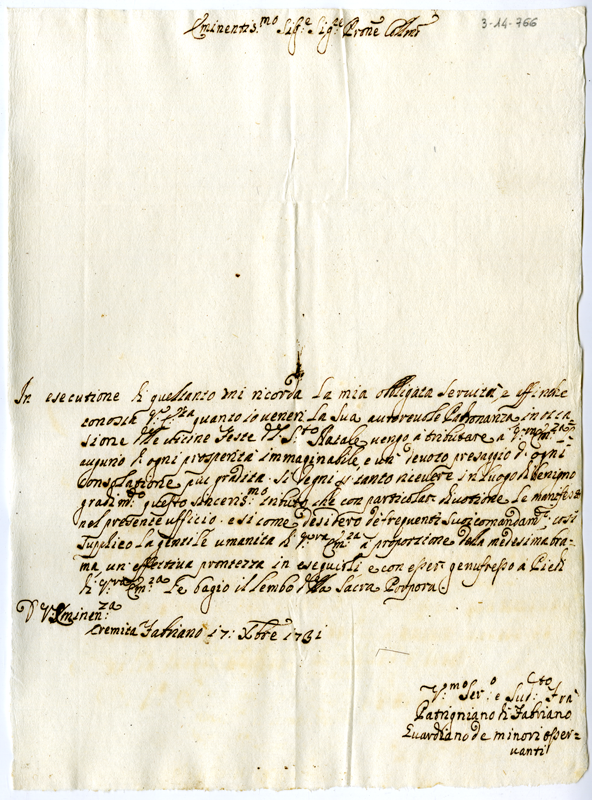 3-14-766
Eminentis.mo Sig.e Sig.e Prone Collmo
In esecutione di quel tanto mi ricorda la mia obligata servitù, e affinche
conosca V.ra Em.za quanto io veneri la sua autorevole Padronanza in occa
sione delle vicine Feste del S.to Natale vengo a tributare a V.ra Em.za
augurio d'ogni prosperità immaginabile, e un devoto presaggio d'ogni
consolatione più gradita. Si degni per tanto ricevere in luogo di benigno
gradim.to questo sinceris.mo tributo che con particolar divotione le manifesto
nel presente ufficio. e si come desidero de frequenti suoi comandam.ti cosi
supplico la gentile umanità di V.ra Em.za a proporzione della medesima bra=
ma un'effettiva prontezza in eseguirli e con esser genuflesso a Piedi
di V.ra Em.za Le bagio il lembo della Sacra Porpora.
D V Eminen.za
Eremita Fabriano 17: Xbre 1731
V.mo Ser.o e Sud.cto Fra
Patrigniano di Fabriano
Guardiano de minori osser=
vanti